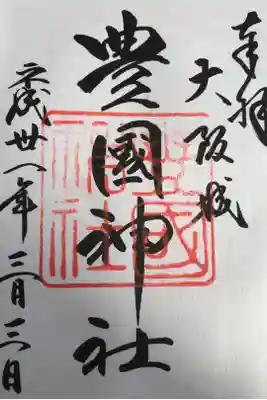 奉拝
大阪城
豊國神社
平成廿八年三月三日